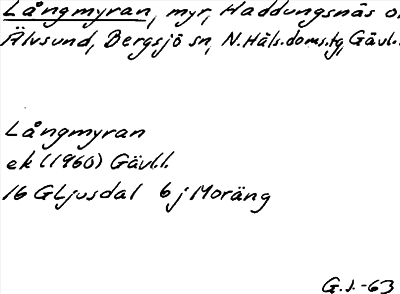 Långmyran, myr, Haddungsnäs o.
Älvsund, Bergsjö sn, N.Häls.doms.tg, Gävl.
Långmyran
ek (1960) Gävl.l.
16 G Ljusdal 6 j Moräng
G.J.-63